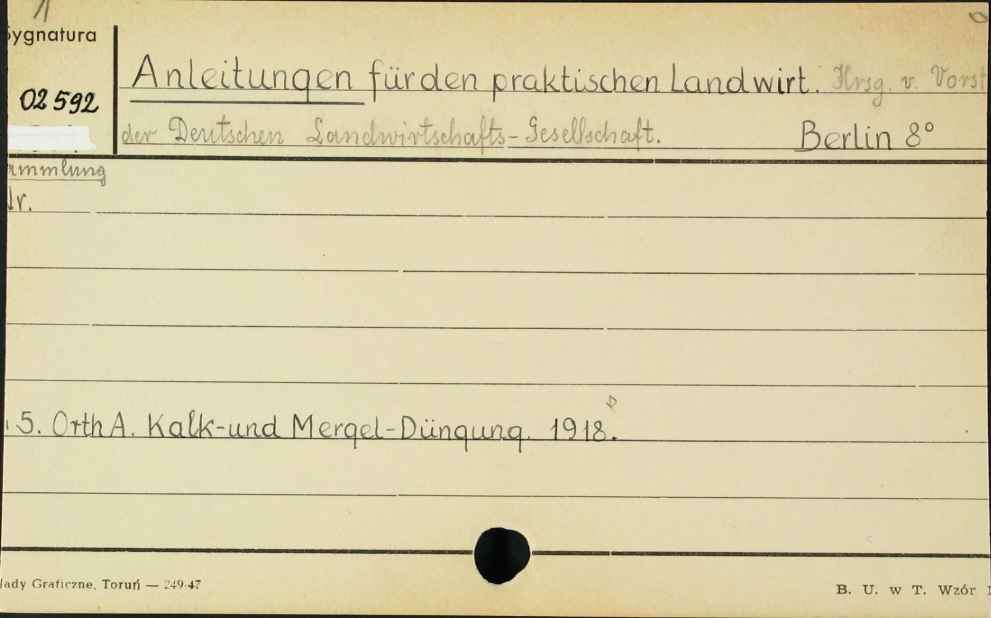 1
Sygnatura
02592
Anleitungen für den praktischen Landwirt. Hrsg. v. Vorst
der Deutschen Landwirtschafts-Gesellschaft. Berlin 8°
ammlung
Nr.
5. Orth A. Kalk-und Mergel-Düngung. 1918.
łady Graficzne, Toruń — 249-47
B. U. w T. Wzór 1